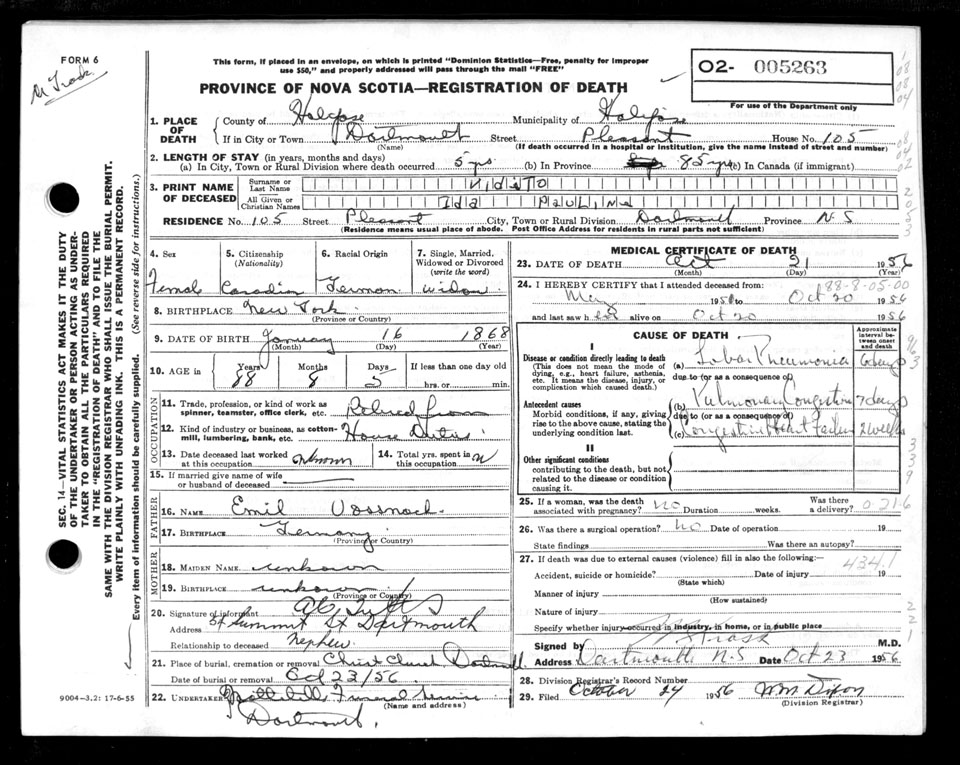 FORM 6
This form, if placed in an envelope, on which is printed "Dominion Statistics—Free, penalty for improper
use $50," and properly addressed will pass through the mail "FREE"
O2- 005263
For use of the Department only
PROVINCE OF NOVA SCOTIA—REGISTRATION OF DEATH
1. PLACE OF DEATH
County of Halifax Municipality of Halifax
If in City or Town Dartmouth Street Pleasant House No. 105
(Name) (If death occurred in a hospital or institution, give the name instead of street and number)
2. LENGTH OF STAY (in years, months and days)
(a) In City, Town or Rural Division where death occurred 5 yrs (b) In Province 85 yrs (b) In Canada (if immigrant)
3. PRINT NAME OF DECEASED
Surname or Last Name
All Given or Christian Names Ida Pauline
RESIDENCE No. 105 Street Pleasant City, Town or Rural Division Dartmouth Province N.S
(Residence means usual place of abode. Post Office Address for residents in rural parts not sufficient)
4. Sex
Female
5. Citizenship
(Nationality)
Canadian
6. Racial Origin
German
7. Single, Married,
Widowed or Divorced
(write the word)
widow
8. BIRTHPLACE New York
(Province or Country)
9. DATE OF BIRTH January 16 1868
(Month) (Day) (Year)
10. AGE in
Years Months Days If less than one day old
88 8 5 hrs. or min.
OCCUPATION
11. Trade, profession, or kind of work as
spinner, teamster, office clerk, etc. Retired from
12. Kind of industry or business, as cotton-
mill, lumbering, bank, etc. House Duties
13. Date deceased last worked
at this occupation unknown
14. Total yrs. spent in
this occupation
15. If married give name of wife
or husband of deceased
FATHER
16. NAME Emil Vossnack
17. BIRTHPLACE Germany
(Province or Country)
MOTHER
18. MAIDEN NAME unknown
19. BIRTHPLACE unknown
(Province or Country)
20. Signature of informant
Address Summit St Dartmouth
Relationship to deceased nephew
21. Place of burial, cremation or removal Christ Church Dartmouth
Oct 23/56
22. UNDERTAKER Funeral Service
(Name and address)
Dartmouth.
9004—3.2: 17-6-55
SEC. 14—VITAL STATISTICS ACT MAKES IT THE DUTY
OF THE UNDERTAKER OR PERSON ACTING AS UNDER-
TAKER TO OBTAIN ALL THE PARTICULARS REQUIRED
IN THE "REGISTRATION OF DEATH" AND TO FILE THE
SAME WITH THE DIVISION REGISTRAR WHO SHALL ISSUE THE BURIAL PERMIT.
WRITE PLAINLY WITH UNFADING INK. THIS IS A PERMANENT RECORD.
Every item of information should be carefully supplied. (See reverse side for instructions.)
MEDICAL CERTIFICATE OF DEATH
23. DATE OF DEATH Oct 21 1956
(Month) (Day) (Year)
88-8-05-00
24. I HEREBY CERTIFY that I attended deceased from
May 195 to Oct 20 1956
and last saw her alive on Oct 20 1956
CAUSE OF DEATH
Approximate
interval be-
tween onset
and death
I
Disease or condition directly leading to death
(This does not mean the mode of
dying, e.g., heart failure, asthenia,
etc. It means the disease, injury, or
complication which caused death.)
(a) Lobar Pneumonia 6 days
due to (or as a consequence of)
Antecedent causes
Morbid conditions, if any, giving
rise to the above cause, stating the
underlying condition last.
(b) Pulmonary Congestion 7 days
due to (or as a consequence of)
(c) Congestive Heart Failure 2 weeks
II
Other significant conditions
contributing to the death, but not
related to the disease or condition
causing it.
25. If a woman, was the death
associated with pregnancy? NO Duration weeks. Was there
a delivery?
0216
26. Was there a surgical operation? NO Date of operation 19
State findings Was there an autopsy?
27. If death was due to external causes (violence) fill in also the following:—
434.1
Accident, suicide or homicide? Date of injury 19
(State which)
Manner of injury
(How sustained)
Nature of injury
Specify whether injury occurred in industry, in home, or in public place
Signed by M.D.
Address Dartmouth N.S Date Oct 23 1956
28. Division Registrar's Record Number
29. Filed October 24 1956 Wm Dixon
(Division Registrar)